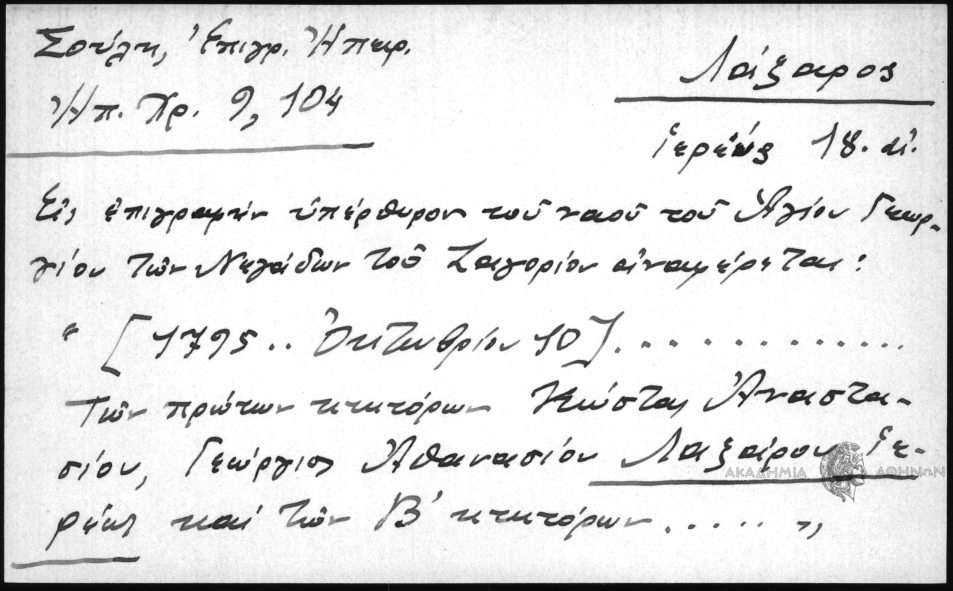 Σούλη, Ἐπιγρ. Ἠπειρ.
Ἠπ. Χρ. 9, 104
Λάζαρος
ἱερεύς 18. αἰ.
Εἰς ἐπιγραφήν ὑπέρθυρον τοῦ ναοῦ τοῦ Ἁγίου Γεωρ-
γίου τῶν Νεγάδων τοῦ Ζαγορίου ἀναφέρεται:
"[1795.. Ὀκτωβρίου 10].............
τῶν πρώτων κτητόρων Κώστας Ἀναστα-
σίου, Γεώργιος Ἀθανασίου Λαζάρου ἱε-
ρέως καί τῶν Β' κτητόρων..... "
ΑΚΑΔΗΜΙΑ ΑΘΗΝΩΝ